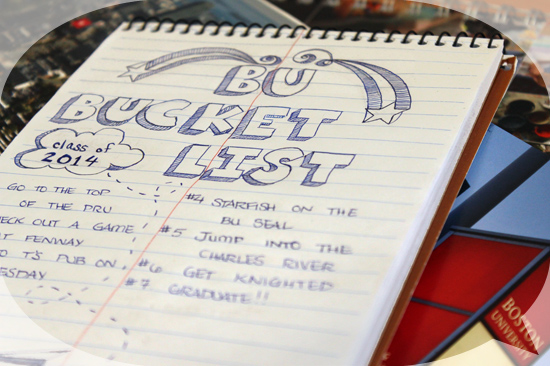 BU
BUCKET
LIST
class of
2014
GO TO THE TOP
OF THE PRU
CHECK OUT A GAME
AT FENWAY
GO T'S PUB ON
TUESDAY
#4 STARFISH ON THE
BU SEAL
#5 JUMP INTO THE
CHARLES RIVER
#6 GET KNIGHTED
#7 GRADUATE!!
BOSTON
UNIVERSITY